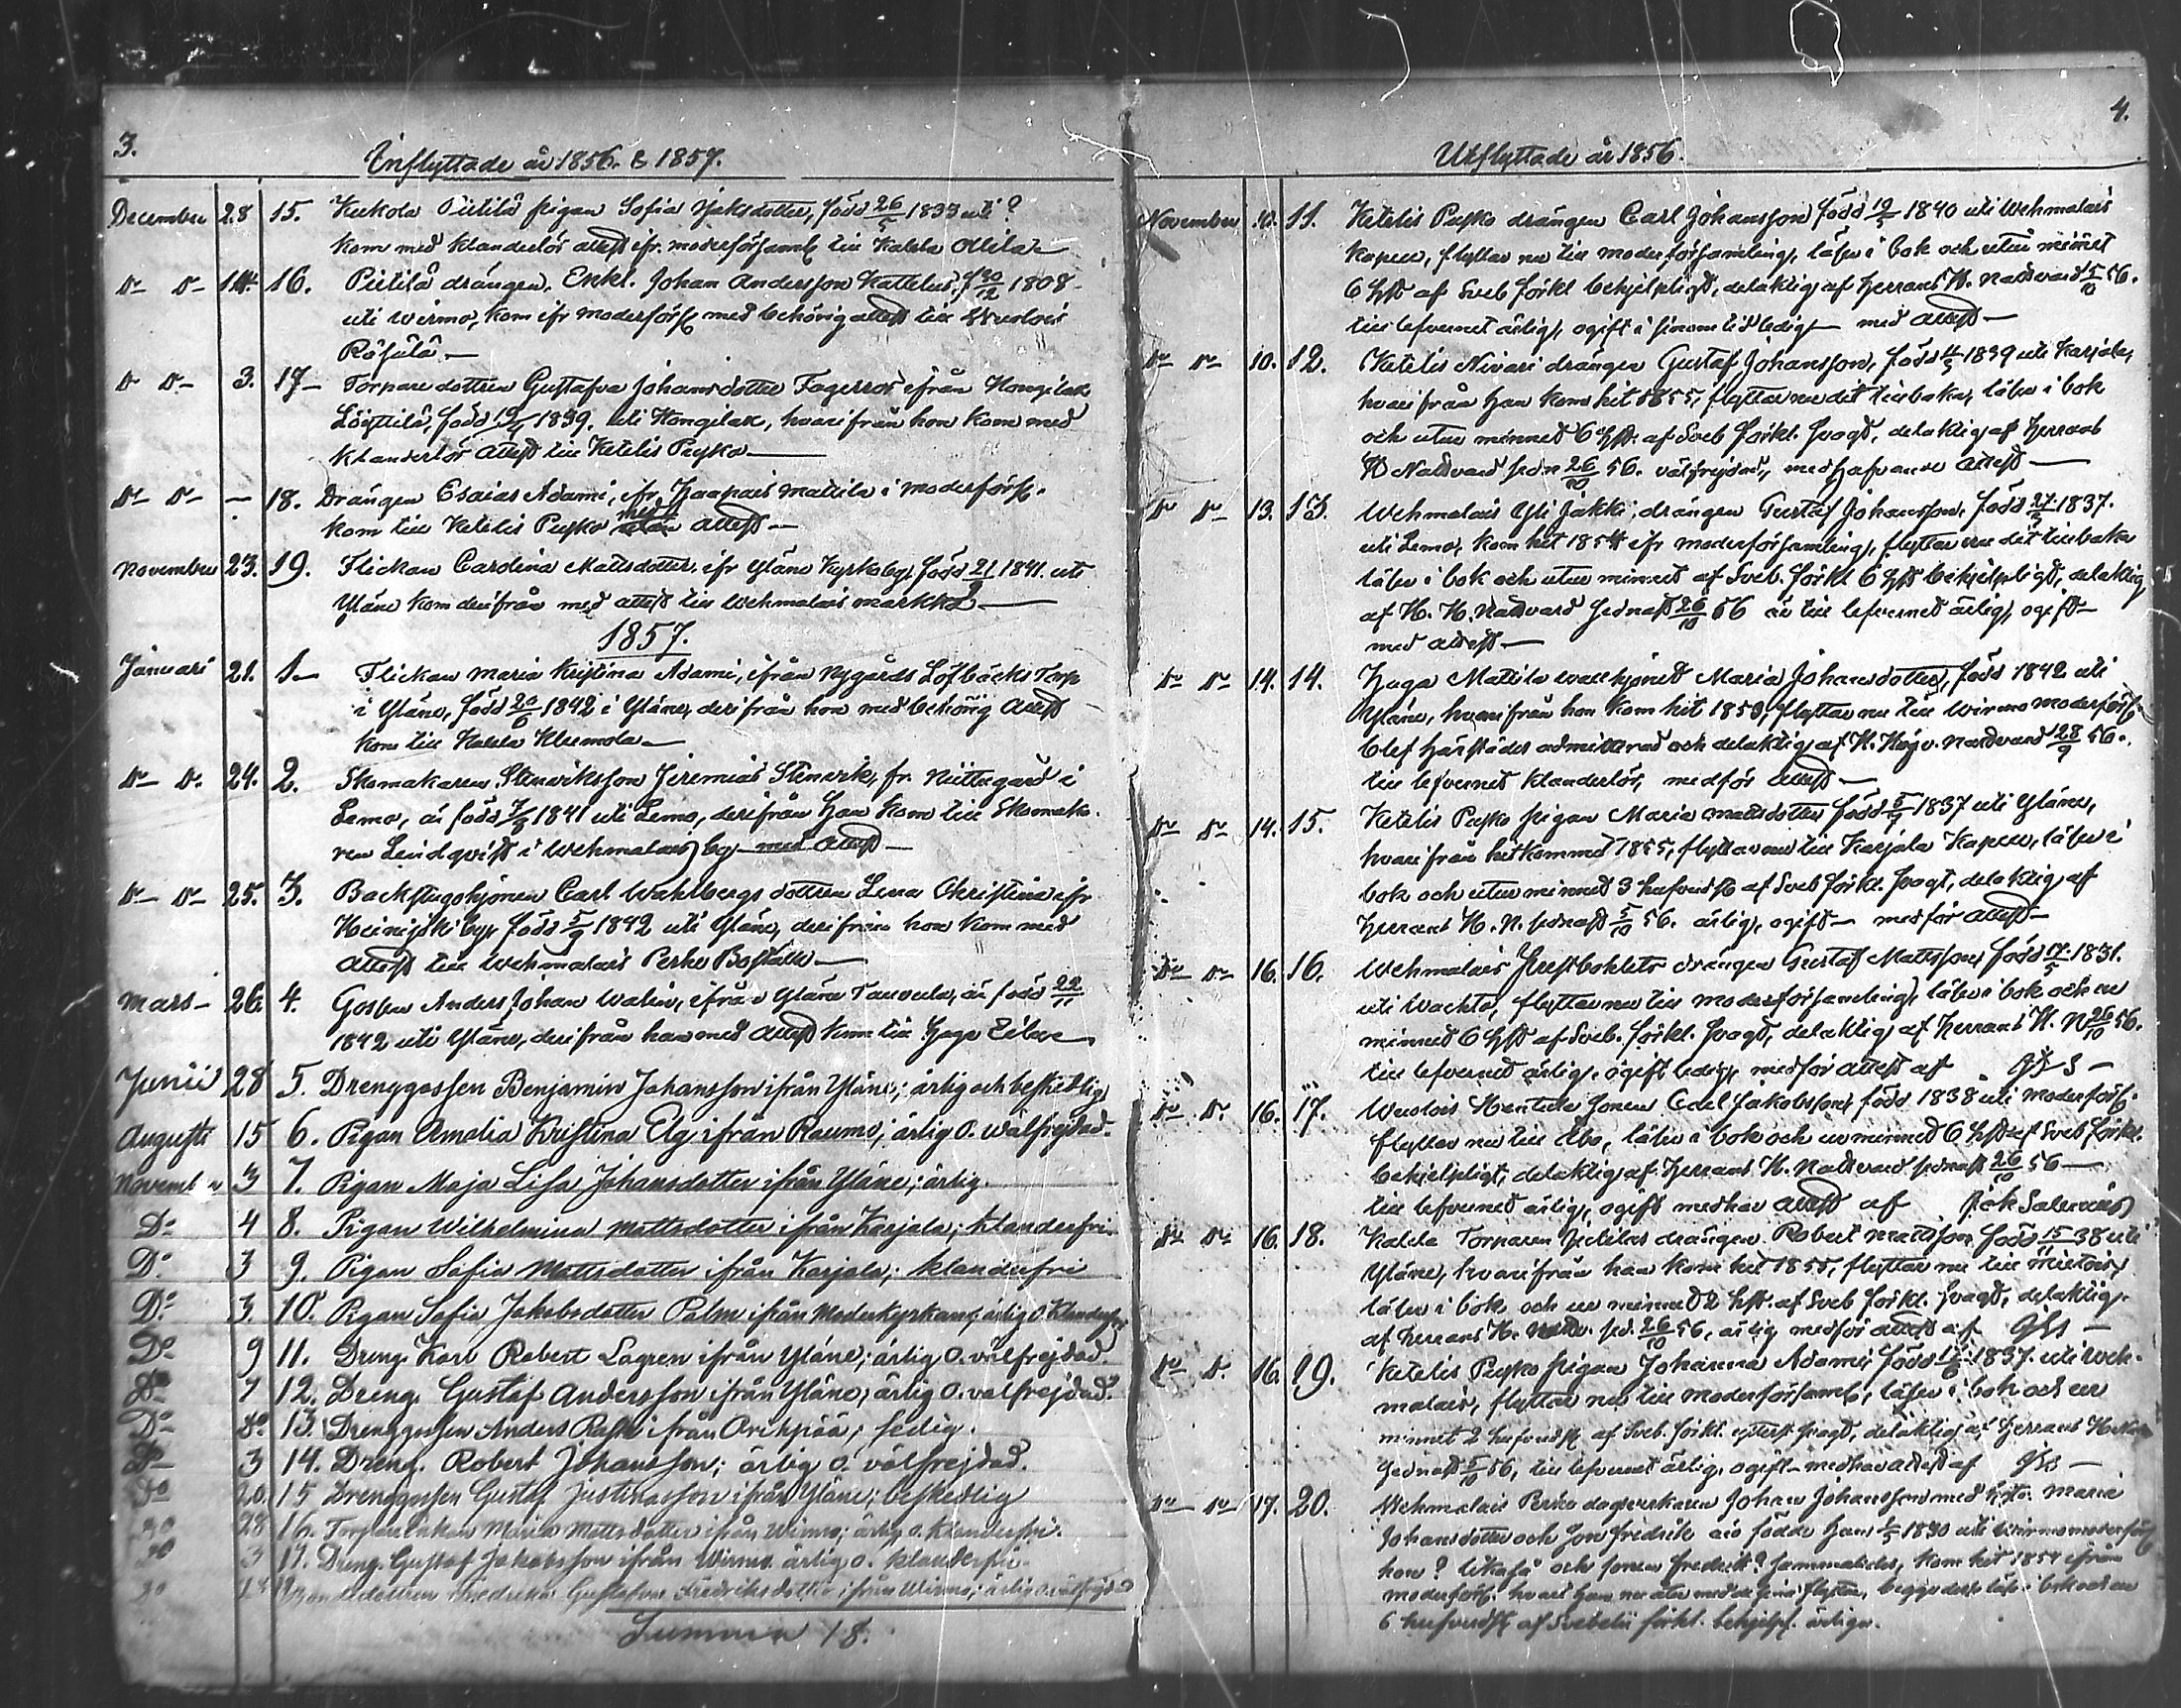 3.
Inflyttade år 1856. & 1857.
December 28 15. Kukola Pietilä pigan Sofia född 26/5 1833 uti ?
kom med klanderlös attest ifr. moderförsaml till Kalela Ollila
Do Do 14 16. Pietilä drängen, Enkl. Johan Andersson Kattelus, f 30/12 1808
uti Wirmo, kom ifr moderförs med behörig attest till

Do Do 3. 17 Torpare dottren Gustafva Johansdotter Fagerros ifrån Hongilax
Löyttilä, född 1839. uti Hongilax, hvarifrån hon kom med
klanderlös attest till Ketelis Peyko
Do Do — 18. Drängen Esaias Adami, ifr Haapais Mattila i moderförs.
kom till Ketelis Peyko med attest —
November 23. 19. Flickan Carolina Mattsdotter ifr Yläne Kyrkoby, född 21/1 1841. uti
Yläne kom derifrån med attest till Wehmalais
1857.
Januari 21. 1. Flickan Maria Kristina Adami, ifrån Nygårds Löfbacks Torp
i Yläne, född 20/6 1842 i Yläne, derifrån hon med behörig attest
kom till Kalela Klemola
Do Do. 24. 2. Skomakaren Stenrikssson Jeremias Stenrik, fr. i
Lemo, är född 1841 uti Lemo, derifrån han kom till Skomaka-
ren Lindqvist i Wehmalais by med attest —
Do Do 25. 3. Backstugohjonen Carl Wahlbergs dottren Lena Christina ifr
Heinijoki by, född 5/9 1842 uti Yläne, derifrån hon kom med
attest till Wehmalais Perko Boställe —
Mars 26. 4. Gossen Anders Johan Walin, ifrån Yläne är född 22/11
1842 uti Yläne, derifrån han med attest kom till Haga Eilare
Junii 28 5. Drenggossen Benjamin Johansson ifrån Yläne; ärlig och beskedlig
Augusti 15 6. Pigan Amalia Kristina Elg ifrån Raumo; ärlig o. wälfrejdad.
November 3 7. Pigan Maja Lisa Johansdotter ifrån Yläne; ärlig.
Do 4 8. Pigan Wilhelmina Mattsdotter ifrån Karjala; klanderfri.
Do. 3 9. Pigan Sofia Mattsdotter ifrån Karjala; klanderfri
Do. 3. 10. Pigan Sofia Jakobsdotter Palm ifrån Moderkyrkan; ärlig o. klanderfri
Do 9 11. Dreng. Karl Robert Lagren ifrån Yläne; ärlig o. välfrejdad.
Do 7 12. Dreng. Gustaf Andersson ifrån Yläne; ärlig o. välfrejdad.
Do Do 13. Drenggossen Anders Rask ifrån Oripää; ledig.
Do 3 14. Dreng. Robert Johansson; ärlig o. välfrejdad.
Do 20. 15 Drenggossen Gustaf Justinasson ifrån Yläne; beskedlig
Do 28 16. Maria Mattsdotter ifrån Wirmo; ärlig o. klanderfri.
Do 3 17. Dreng. Gustaf Jakobsson ifrån Wirmo. ärlig o. klanderfri.
Do Fredrika Gustafva Fredriksdotter ifrån Wirmo; ärlig o. wälfrejdad
Summa 18.
4.
Utflyttade år 1856.
November 10. 11. Ketelis Peyko drängen Carl Johansson född 1840 uti Wehmalais
kapell, flyttar nu till moderförsamling, läser i bok och utur minnet
6 hft af Sveb förkl behjelpligt, delaktig af Herrans H. Nattvard 5/10 56.
till lefvernet ärlig, ogift i sinom tid ledig — med attest —
Do Do 10. 12. Ketelis Nivari drängen Gustaf Johansson, född 1839 uti Karjala,
hvarifrån han kom hit 1855, flyttar nu dit tillbaka, läser i bok
och utur minnet 6 hft. af Sveb förkl. svagt, delaktig af Herrans
H Nattvard sedn 26/10 56. välfrejdad, medhafvande attest —
Do Do 13. 13. Wehmalais Yli Jakki, drängen Gustaf Johansson, född 1837.
uti Lemo, kom hit 1854 ifr moderförsamling, flyttar nu dit tillbaka
läser i bok och utur minnet af Sveb. förkl 6 hft behjelpligt, delaktig
af H. H. Nattvard sednast 26/10 56 är till lefvernet ärlig, ogift —
med attest —
Do Do 14. 14. Haga Mattila Maria Johansdotter, född 1842 uti
Yläne, hvarifrån hon kom hit 1853, flyttar nu till Wirmo moderförs.
blef härstädes admitterad och delaktig af H. Högv. Nattvard 28/9 56.
till lefvernet klanderlös, medför attest —
Do Do 14. 15. Ketelis Peyko pigan Maria Mattsdotter född 1837 uti Yläne,
hvarifrån hitkommit 1855, flyttar nu till Karjala kapell, läser i
bok och utur minnet 3 hufvudst af Sveb förkl. svagt, delaktig af
Herrans H. N. sednast 5/10 56. ärlig, ogift — medför attest —
Do Do 16. 16. Wehmalais drängen Gustaf Mattsson, född 1831.
uti flyttar nu till moderförsamling, läser i bok och ur
minnet 6 hft af Sveb. förkl. svagt, delaktig af Herrans H. N 26/10 56.
till lefvernet ärlig, ogift ledig, medför attest af
Do Do. 16. 17. sonen Carl Jakobsson, född 1838 uti moderförs.
flyttar nu till Åbo, läser i bok och ur minnet 6 hft af Sveb förkl.
behjelpligt, delaktig af Herrans H. Nattvard sednast 26/10 56 —
till lefvernet ärlig, ogift medhar attest af
Do Do 16. 18. Kalela Torparen drängen Robert Mattsson född 15/11 38 uti
Yläne, hvarifrån han kom hit 1855, flyttar nu till Mietois,
läser i bok och ur minnet 2 hft. af Sveb förkl. svagt, delaktig
af Herrans H. Nattv. sed. 26/10 56, ärlig medför attest af
Do Do. 16. 19. Ketelis Peyko pigan Johanna Adami, född 1837. uti Weh-
malais, flyttar nu till moderförsaml, läser i bok och ur
minnet 2 hufvudst af Sveb. förkl. ytterst svagt, delaktig af Herrans H.
sednast 5/10 56, till lefvernet ärlig, ogift — medhar attest af
Do Do 17. 20. Wehmalais Perko dagsverskarlen Johan Johansson med hustr. Maria
Johansdotter och son Fredrik äro födde han 1830 uti Wirmo moderförs
hon ? likaså och sonen Fredrik ? sammaledes, kom hit 1854 ifrån
moderförs. hvart han nu åter med de sina flyttar, beggedera läs i bok och ur
6 hufvudst af Svebelii förkl. behjelpl. ärliga.